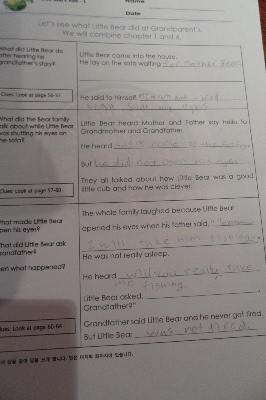 Name
Date
Let's see what Little Bear did at Grandparent's.
We will combine chapter 1 and 4.
What did Little Bear do
after hearing his
grandfather's story?
Little Bear came into the house.
He lay on the sofa waiting for Mother Bear
Clues: Look at page 56-57
He said to himself, I am not tired
my eyes
What did the Bear family
talk about while Little Bear
was shutting his eyes on
the sofa?
Little Bear heard Mother and Father say hello to
Grandmother and Grandfather.
He heard
But he did not open his eyes
Clues: Look at page 57-60
They all talked about how Little Bear was a good
little cub and how he was clever.
What made Little Bear
open his eyes?
What did Little Bear ask
grandfather?
Then what happened?
The whole family laughed because Little Bear
opened his eyes when his father said, "
I will take him fishing.
He was not really asleep.
He heard will you really take
me fishing
Little Bear asked,
Grandfather?"
Clues: Look at page 60-64
Grandfather said Little Bear and he never got tired.
But Little Bear was not tired.